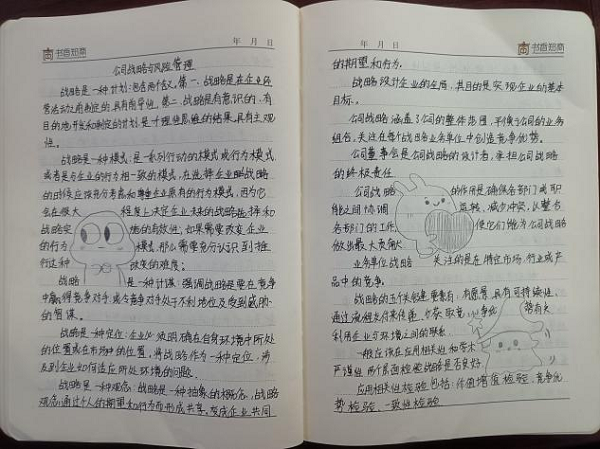 书香知意
年 月 日
公司战略与风险管理
战略是一种计划:包含两个含义。第一,战略是在企业经
营活动之前制定的,具有前导性。第二,战略是有意识的、有
目的地开发和制定的计划,是一种理性思维的结果,具有主观
性。
战略是一种模式:是一系列行动的模式或行为模式,
或者是与企业的行为相一致的模式,在选择企业战略
的时候应该充分考虑和尊重企业原有的行为模式,因为它
会在很大 程度上决定企业未来的战略选择和
战略实 地的有效性;如果需要改变企业
的行为 模式,那么需要充分认识到推
行这种 改变的难度。
战略 是一种计谋:强调战略是要在竞争
中赢得竞争对手,或令竞争对手处于不利地位及受到威胁
的智谋。
战略是一种定位:企业必须明确在自身环境中所处
的位置或在市场中的位置,将战略作为一种定位,涉
及到企业如何适应所处环境的问题
战略是一种观念:战略是一种抽象的概念,战略
观念通过个人的期望和行为而形成共享,变成企业共同
年 月 日
书香知意
的期望和行为。
战略设计企业的全局,其目的是实现企业的基本
目标。
公司战略涵盖了公司的整体范围,不像与公司的业务
组合,关注在每个战略业务单位中创造竞争优势。
公司董事会是公司战略的设计者,承担公司战略
的终极责任
公司战略 的作用是确保各部门或职
能之间协调 运转、减少冲突,从整各
部门的工作 使它们能为公司战略
做出最大贡献
业务单位战略 关注的是在特定市场、行业或产
品中的竞争。
战略的五个关键要素有:有愿景,具有可持续性,
通过 有效
利用企业与环境之间的联系
一般应该在应用相关性和学术
严谨性两个层面检验战略是否良好
应用相关性检验包括:价值增值检验、竞争优
势检验、一致性检验